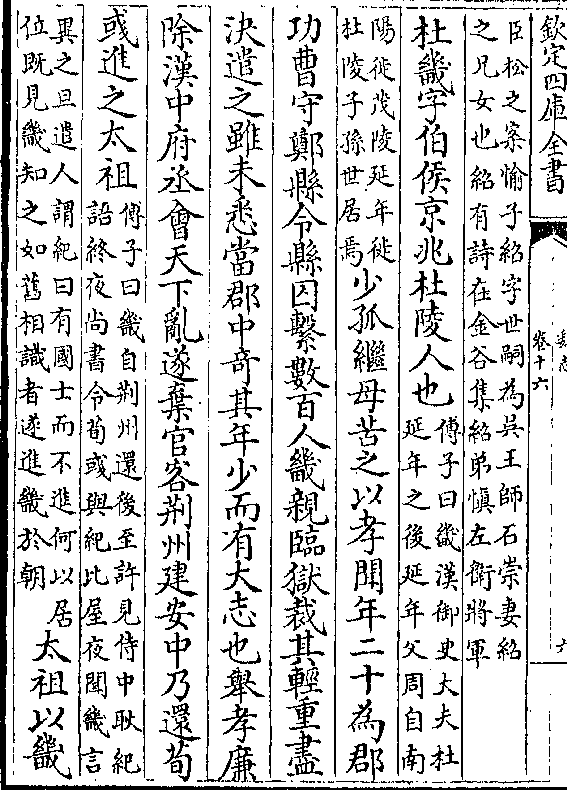 欽定四庫全書
魏志
卷十六
六
臣松之案愉子紹字世嗣為吳王師石崇妻紹
之兄女也紹有詩在金谷集紹弟慎左衛將軍
杜畿字伯侯京兆杜陵人也
傅子曰畿漢御史大夫杜
延年之後延年父周自南
陽徙茂陵延年徙
杜陵子孫世居焉
少孤繼母苦之以孝聞年二十為郡
功曹守鄭縣令縣囚繫數百人畿親臨獄裁其輕重盡
決遣之雖未悉當郡中奇其年少而有大志也舉孝廉
除漢中府丞會天下亂遂棄官客荆州建安中乃還荀
彧進之太祖
傅子曰畿自荆州還後至許見侍中耿紀
語終夜尚書令荀彧與紀比屋夜聞畿言
異之旦遣人謂紀曰有國士而不進何以居
位既見畿知之如舊相識者遂進畿於朝
太祖以畿